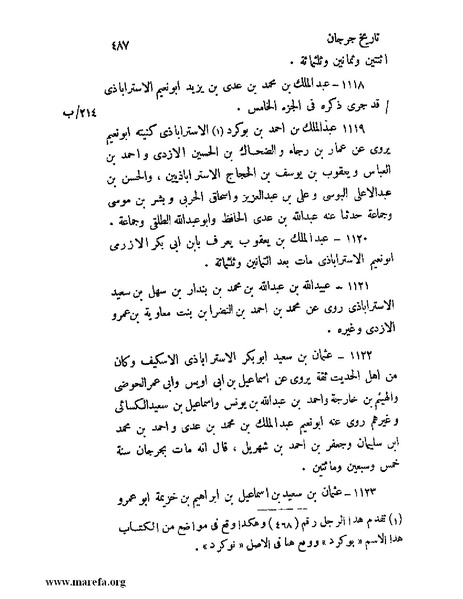 تاريخ جرجان ٤٨٧
اثنتين وثمانين وثلثمائة .
١١١٨ – عبدالملك بن محمد بن عدى بن يزيد ابونعيم الاستراباذى
/ قد جرى ذكره فى الجزء الخامس . ٢١٤/ب
١١١٩ – عبدالملك بن احمد بن بوكرد (١) الاستراباذى كنيته ابونعيم
يروى عن عمار بن رجاء والضحاك بن الحسين الازدى واحمد بن
العباس ويعقوب بن يوسف بن الحجاج الاستراباذيين ، والحسن بن
عبدالاعلى البوسى وعلى بن عبدالعزيز واسحاق الحربى وبشر بن موسى
وجماعة حدثنا عنه عبدالله بن عدى الحافظ وابوعبدالله الطلقى وجماعة .
١١٢٠ – عبدالملك بن يعقوب يعرف بابن ابى بكر الازرمى
ابونعيم الاستراباذى مات بعد الثمانين وثلثمائة .
١١٢١ – عبيدالله بن عبدالله بن محمد بن بندار بن سهل بن سعيد
الاستراباذى روى عن محمد بن احمد بن النضر ابن بنت معاوية بن عمرو
الازدى وغيره .
١١٢٢ – عثمان بن سعيد ابوبكر الاستراباذى الاسكيف وكان
من اهل الحديث ثقة يروى عن اسماعيل بن ابى اويس وابى عمر الحوضى
والهيثم بن خارجة واحمد بن عبدالله بن يونس واسماعيل بن سعيد الكسائى
وغيرهم روى عنه ابونعيم عبدالملك بن محمد بن عدى واحمد بن محمد
ابن سليمان وجعفر بن احمد بن شهريل ، قال انه مات بجرجان سنة
خمس وسبعين ومائتين .
١١٢٣ – عثمان بن سعيد بن اسماعيل بن ابراهيم بن خزيمة ابو عمرو
(١) تقدم هذا الرجل رقم (٤٦٨) وهكذا وقع فى مواضع من الكتاب
هذا الاسم « بوكرد » ووقع هنا فى الاصل « نوكرد » .
www.marefa.org